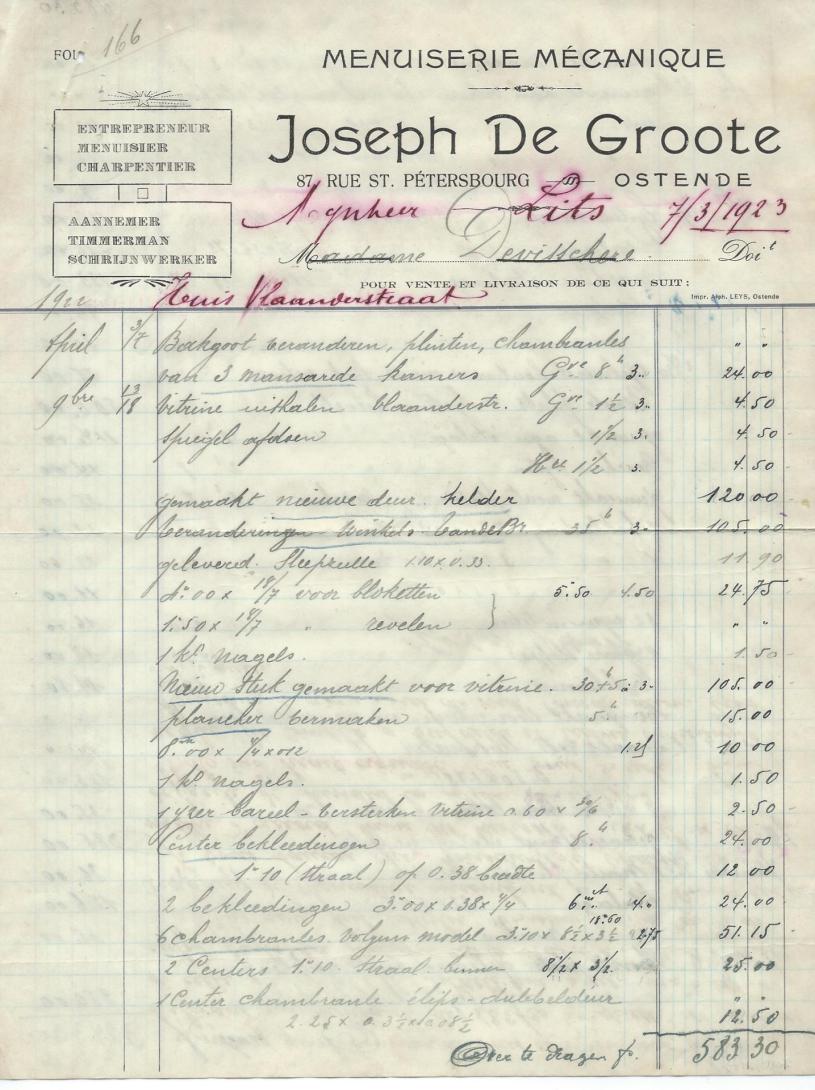 FOL. 166
MENUISERIE MÉCANIQUE
ENTREPRENEUR
MENUISIER
CHARPENTIER
AANNEMER
TIMMERMAN
SCHRIJNWERKER
Joseph De Groote
87, RUE ST. PÉTERSBOURG OSTENDE
Mynheer Lits 7/3/1923
Madame Devisschere Doit
POUR VENTE ET LIVRAISON DE CE QUI SUIT:
Impr. Alph. LEYS, Ostende
1922 Huis Vlaanderstraat
April 3/7 Bakgoot veranderen, plinten, chambranles " "
van 3 mansarde kamers Gve 8 h 3.. 24.00
9bre 13/18 Vitrine uithalen Vlaanderstr. Gve 1½ 3.. 4.50
spiegel afdoen 1½ 3. 4.50
1½ 3. 4.50
gemaakt nieuwe deur kelder 120 00
veranderingen Winkels 35 h 3- 105.00
geleverd 1.10 x 0.33. 11.90
4.00 x 18/7 voor bloketten 5.50 4.50 24.75
1.50 x 18/7 " revelen " "
1 K° nagels. 1.50
Nieuw stuk gemaakt voor vitrine. 30+5 h 3- 105.00
plancher vermaken 5 h 15.00
8.00 x 4/4 x 0.12 1.25 10 00
1 K° nagels. 1.50
1 yzer bareel - versterken vitrine 0.60 x 30/6 2.50
Center bekleedingen 8 h 24.00
1.10 (straal) op 0.38 breedte 12 00
2 bekleedingen 3.00 x 0.38 x 4/4 6 4.. 24.00
6 chambranles volgens model 3.10 x 8½ x 3½ 18.60 2.75 51.15
2 Centers 1.10 Straal binnen 8½ x 3½ 25.00
1 Center chambranle élips - dubbeldeur " "
2.25 x 0.3½ x 0.08½ 12.50
Over te dragen fr. 583 30